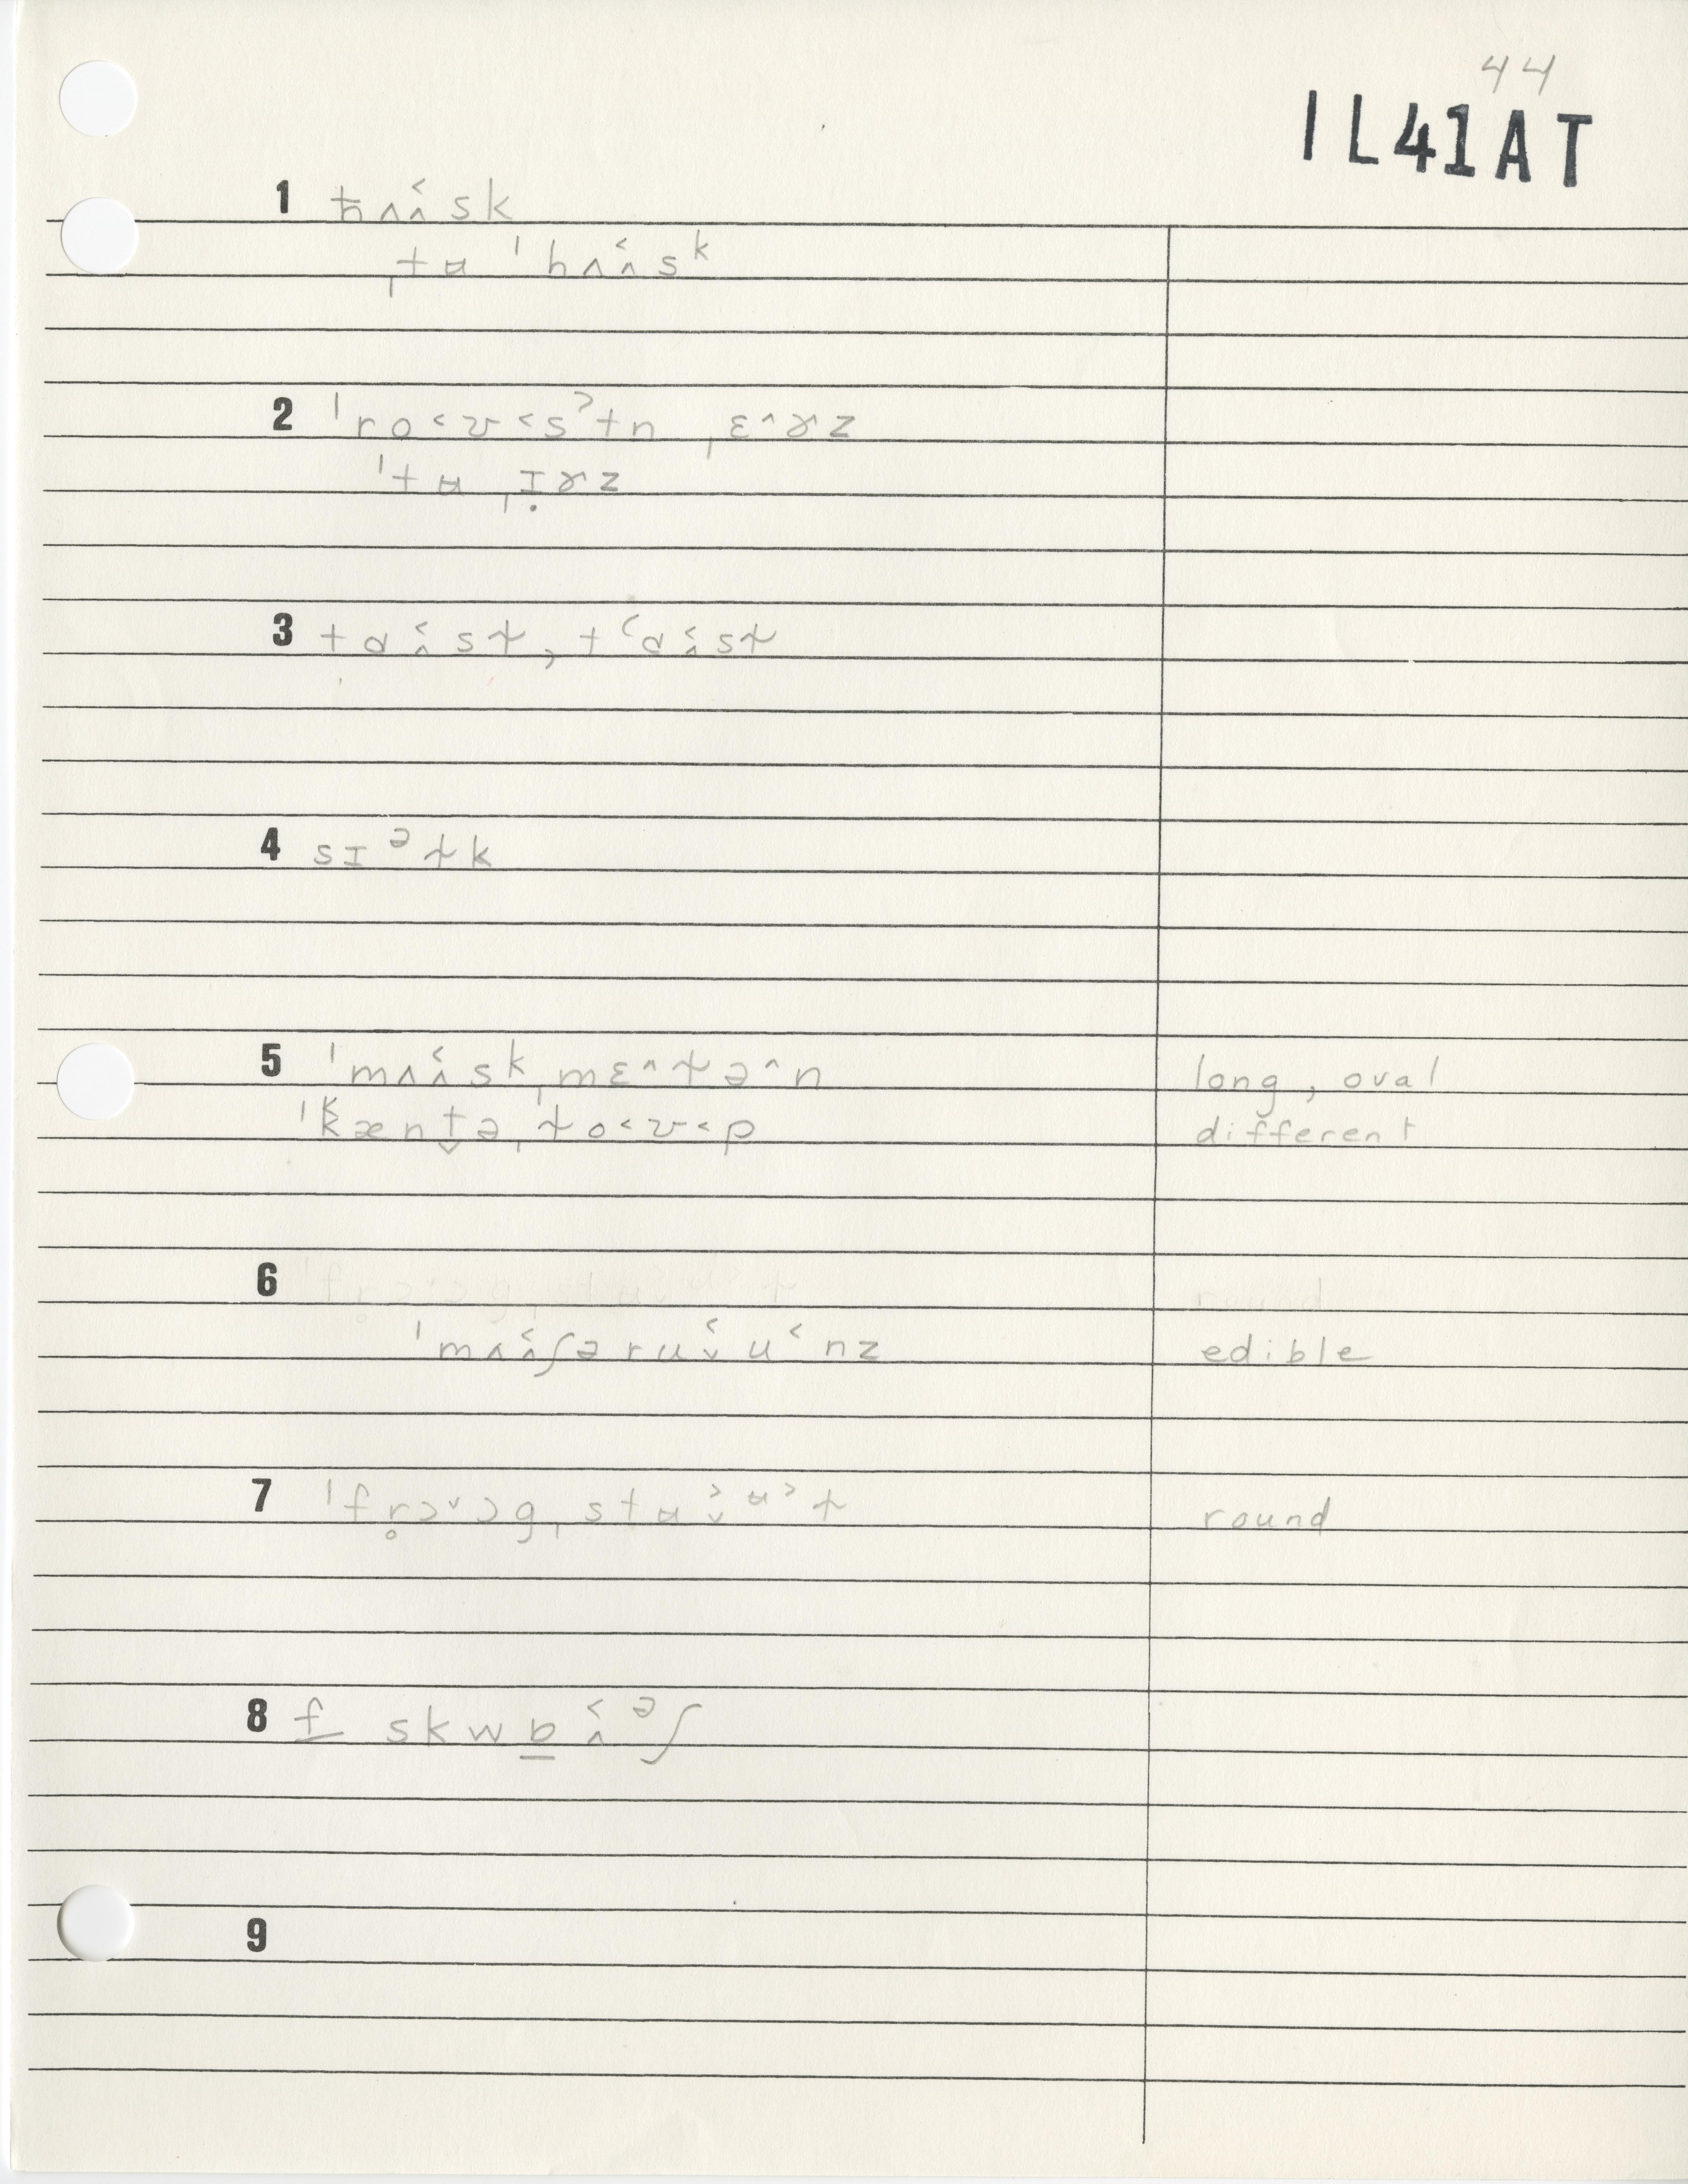 44
IL41AT
1 ħʌʌ̂˂sk
ˌtʉ ˈhʌʌ̂˂sk
2 ˈro˂ʊ˂s˃tn ˌɛ˄ɤz
ˈtʉ ˌɪ̣ɤz
3 tɑʌ̂˂st̴, tʻɑʌ̂˂st̴
4 sɪᵊt̴k
5 ˈmʌʌ̂˂skˌmɛ˄t̴ə˄n long, oval
ˈkænt̬əˌt̴o˂ʊ˂p different
6
ˈmʌʌ̂˂ʃəruˇ˂u˂nz edible
7 ˈfr̥ɔˇɔgˌstʉˇ˃ʉ˃t̴ round
8 f skwɒ̲ʌ̂˂ᵊʃ
9